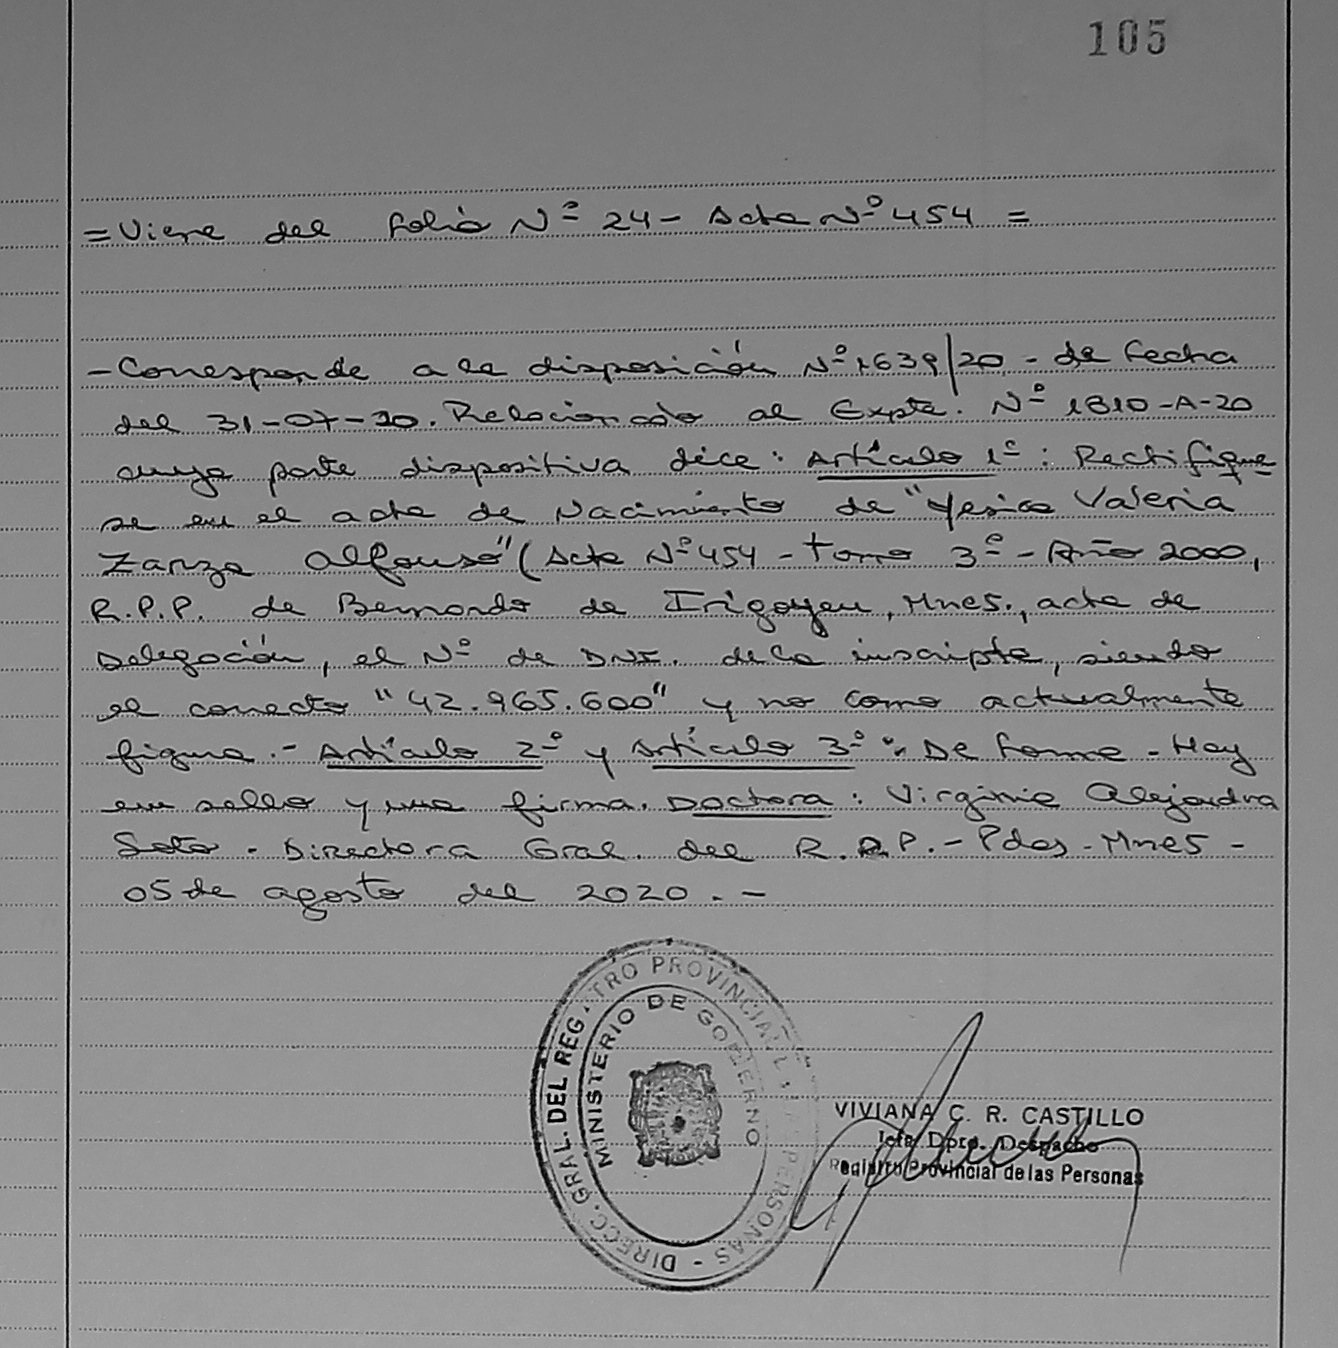 105
= Viene del folio Nº 24 - Acta Nº 454 =
- Corresponde a la disposición Nº 1639/20 - de fecha
del 31-07-20. Relacionado al Expte. Nº 1810-A-20
cuya parte dispositiva dice: Artículo 1º: Rectifique
se en el acta de Nacimiento de "Yesica Valeria
Zanza Alfonso" (Acta Nº 454 - Tomo 3º - Año 2000,
R.P.P. de Bernardo de Irigoyen, Mnes., acta de
Delegación, el Nº de DNI. de la inscripta, siendo
el correcto "42.965.600" y no como actualmente
figura. - Artículo 2º y Artículo 3º: De forma - Hay
un sello y una firma. Doctora: Virginia Alejandra
Soto. Directora Gral. del R.P.P. - Pdas - Mnes -
05 de agosto del 2020. -
DIRECC. GRAL. DEL REGISTRO PROVINCIAL PERSONAS -
MINISTERIO DE GOBIERNO
VIVIANA C. R. CASTILLO
Jefa Dpto. Despacho
Registro Provincial de las Personas